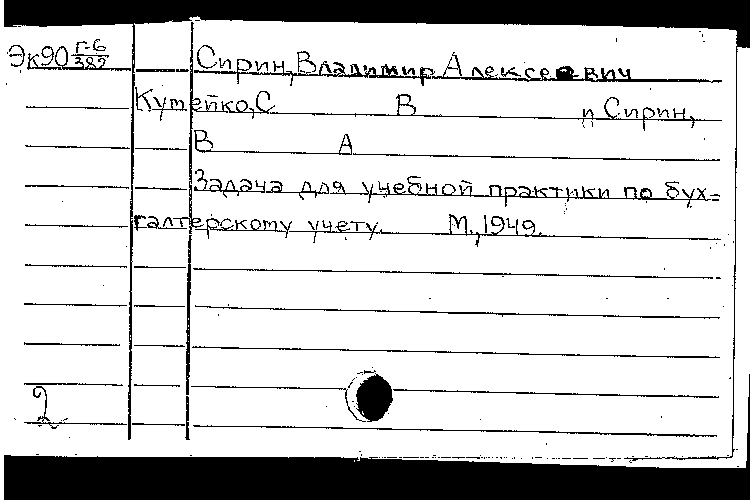 Эк90 Г-6/389
Сирин, Владимир Алексеевич
Кутейко, С В и Сирин,
В А
Задача для учебной практики по бух=
галтерскому учету. М., 1949.
2